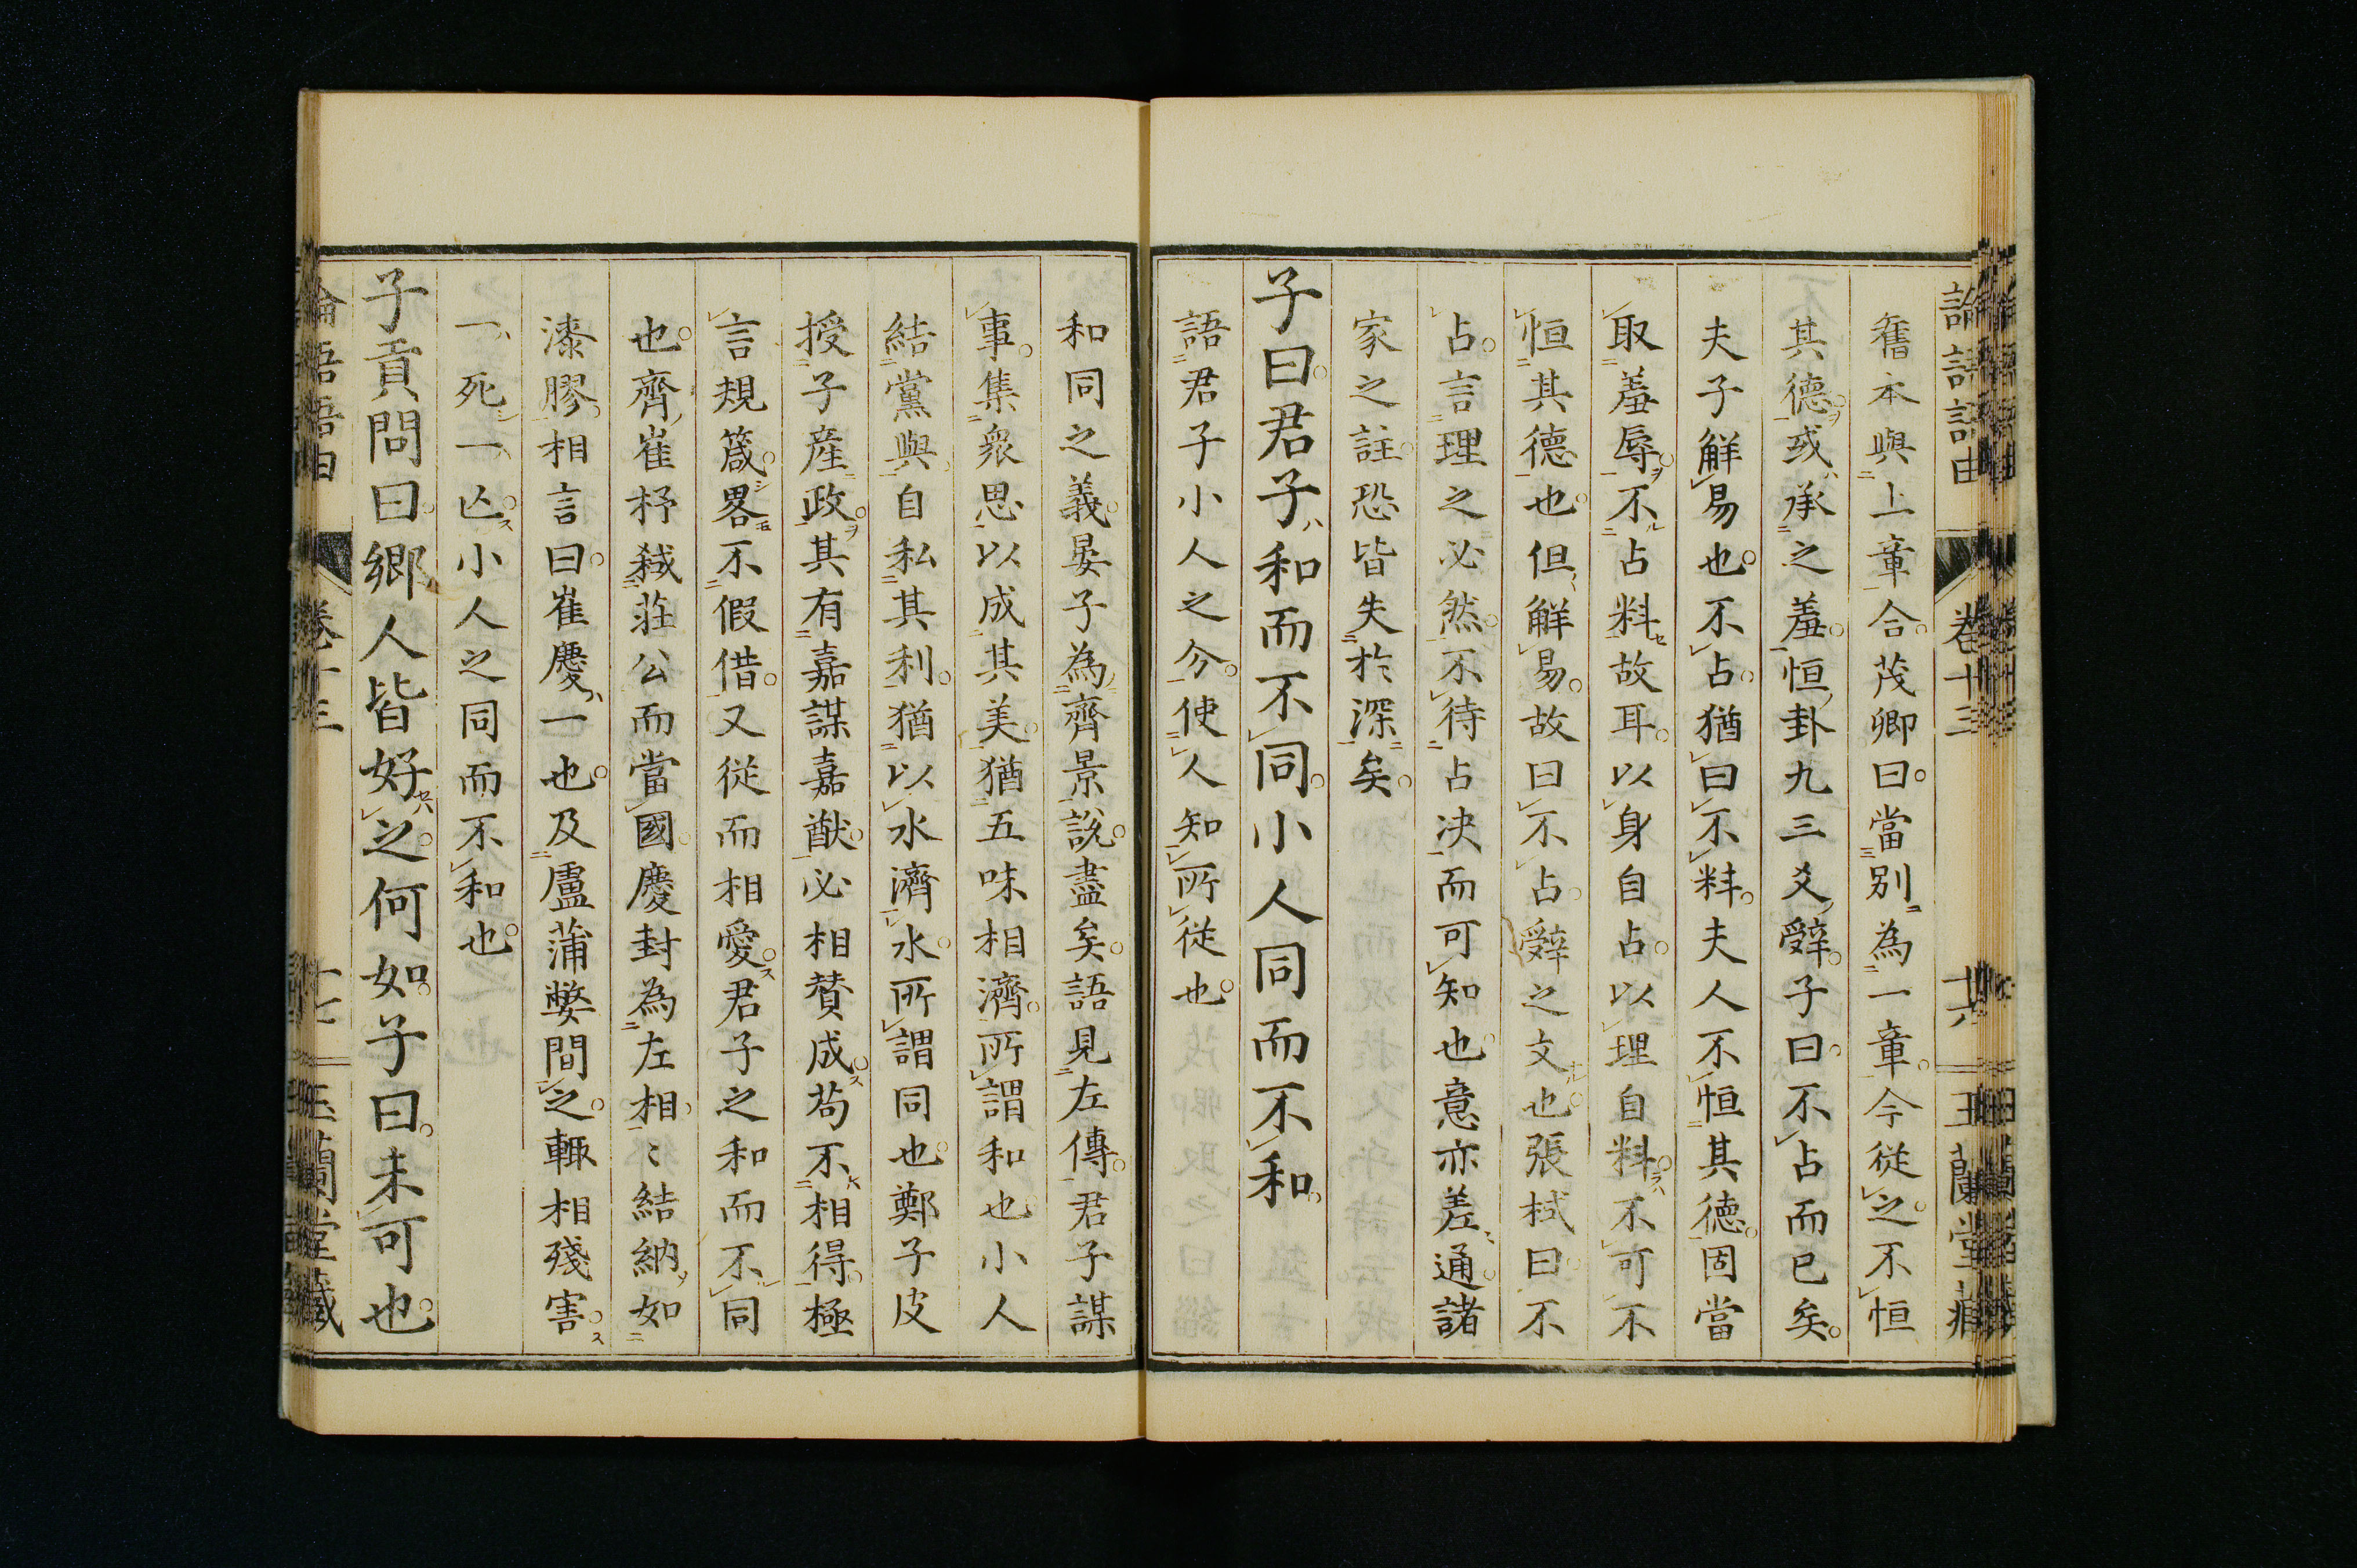 舊本與上章合茂卿曰當別為一章今從之不恒
其德或承之羞恒卦九三爻辭子曰不占而已矣
夫子解易也不占猶曰不料夫人不恒其德固當
取羞辱不占料故耳以身自占以理自料不可不
恒其德也但解易故曰不占辭之文也張栻曰不
占言理之必然不待占决而可知也意亦差通諸
家之註恐皆失於深矣
子曰君子和而不同小人同而不和
語君子小人之分使人知所從也
和同之義晏子為齊景說盡矣語見左傳君子謀
事集衆思以成其美猶五味相濟所謂和也小人
結黨與自私其利猶以水濟水所謂同也鄭子皮
授子產政其有嘉謀嘉猷必相贊成苟不相得極
言規箴畧不假借又從而相愛君子之和而不同
也齊崔杼弑莊公而當國慶封為左相〻結納如
漆膠相言曰崔慶一也及盧蒲嫳間之輙相殘害
一死一亾小人之同而不和也
子貢問曰鄉人皆好之何如子曰未可也
論語語由 卷十三